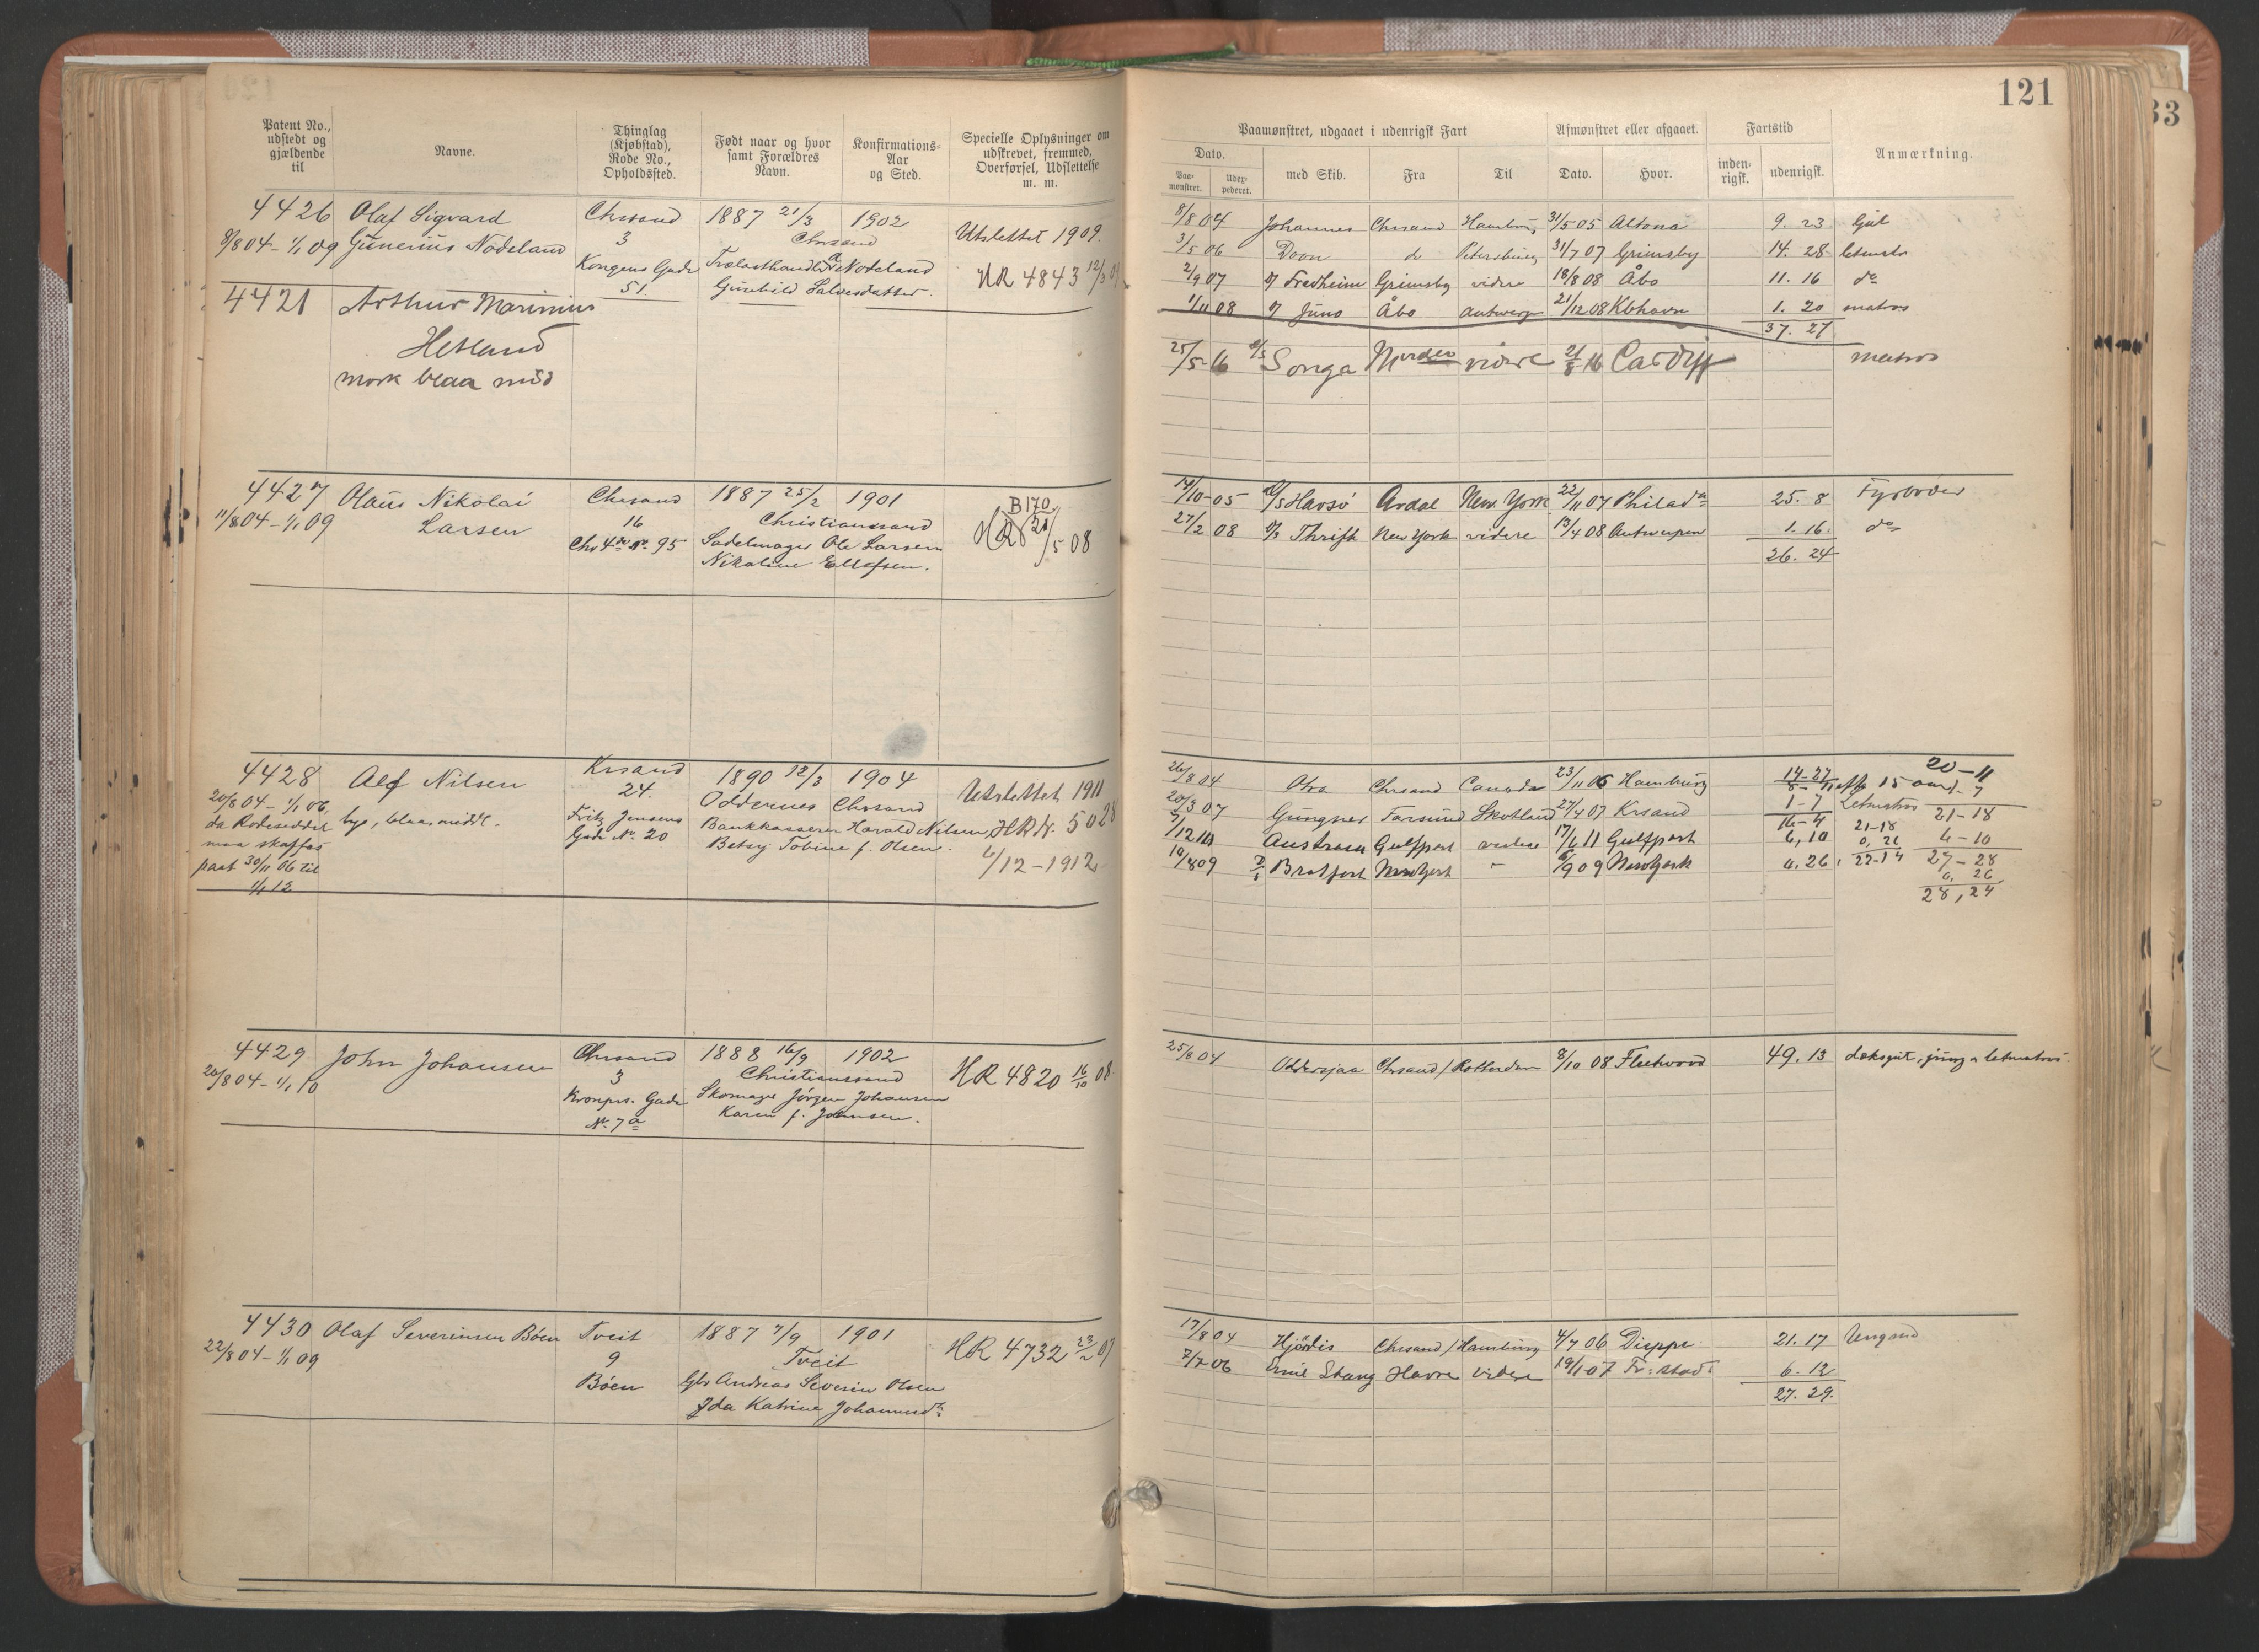 121
33
Patent No., udstedt og gjældende til
Navne.
Thinglag (Kjøbstad), Rode No., Opholdssted.
Født naar og hvor samt Forældres Navn.
Konfirmations-Aar og Sted.
Specielle Oplysninger om udskrevet, fremmed, Overførsel, Udslettelse m. m.
Paamønstret, udgaaet i udenrigsk Fart
Afmønstret eller afgaaet.
Fartstid
Anmærkning.
Dato.
Paa-mønstret.
Uder-pederet.
med Skib.
Fra
Til
Dato.
Hvor.
inden-rigsk.
udenrigsk.
4426 Olaf Sigvard Chrsand 1887 21/3 1902
8/8 04 - 1/1 09 Gunerius Nodeland 3 Chrsand Utslettet 1909.
Kongens Gade Trælasthandler A Nodeland HR 4843 12/3 09
51. Gunhild Salvesdatter.
8/8 04 Johannes Chrsand Hamburg 31/5 05 Altona 9. 23
3/5 06 Doon do Petersburg 31/7 07 Grimsby 14. 28 letmatr
2/9 07 Fredheim Grimsby videre 18/8 08 Åbo 11. 16 do
1/11 08 Juno Åbo Antwerp 21/12 08 Kbhavn 1. 20 matros
37. 27
4421 Arthur Marinius
Hetland
mørk blaa mid
25/5-16 Songa videre 16 Cardiff matros
4427 Olaus Nikolai Chrsand 1887 25/2 1901 B170
11/8 04 - 1/1 09 Larsen 16 Christianssand HR 28/5 08
95 Sadelmager Ole Larsen
Nikoline Ellefsen.
14/10-05 Havsø Ardal New York 22/11 07 Philada 25. 8 Fyrbøder
27/2 08 Thrift New York videre 13/4 08 Antwerpen 1. 16. do
26. 24
4428 Alf Nilsen Krsand 1890 12/3 1904 Utslettet 1911
20/8 04 - 1/1 06, 24. Oddernes Chrsand
da Rodeseddel byp, blaa, middl. Fritz Jensens Bankkasserer Harald Nilsen, HR Nr. 5028
maa skaffes Gade No. 20 Betsy Tobine f. Olsen. 6/12 - 1912
paat 30/11 06 til
1/1 12
26/8 04 Otra Chrsand Canada 23/11 06 Hamburg 14-27 20-11
20/3 07 Gungner Farsund Skotland 27/4 07 Krsand 1-7 Letmatros 21-18
16-4 21-18
Gulfport videre 17/6 11 Gulfport 6, 10 0, 26 6-10
19/8 09 Bratfort NewYork 6/9 09 NewYork 0. 26, 22-14 27-28
0. 26
28, 24
4429 John Johansen Chrsand 1888 16/9 1902
20/8 04 - 1/1 10 3 Christianssand HR 4820 16/10 08
Kronprs. Gade Skomager Jörgen Johansen
No. 7a Karen f. Johnsen.
25/8 04 Oddersjaa Chrsand / Rotterdam 8/10 08 Fleetwood 49. 13 dæksgut, jung & letmatros
4430 Olaf Severinsen Böen Tveit 1887 7/9 1901
22/8 04 - 1/1 09 9 Tveit HR 4732 23/2 07
Böen Gbr Andreas Severin Olsen
Ida Katrine Johannesd.
17/8 04 Hjördis Chrsand / Hamburg 4/7 06 Dieppe 21. 17 Ungmd
7/7-06 Emil Stang Havre videre 19/1 07 Fr:stad 6. 12
27. 29.